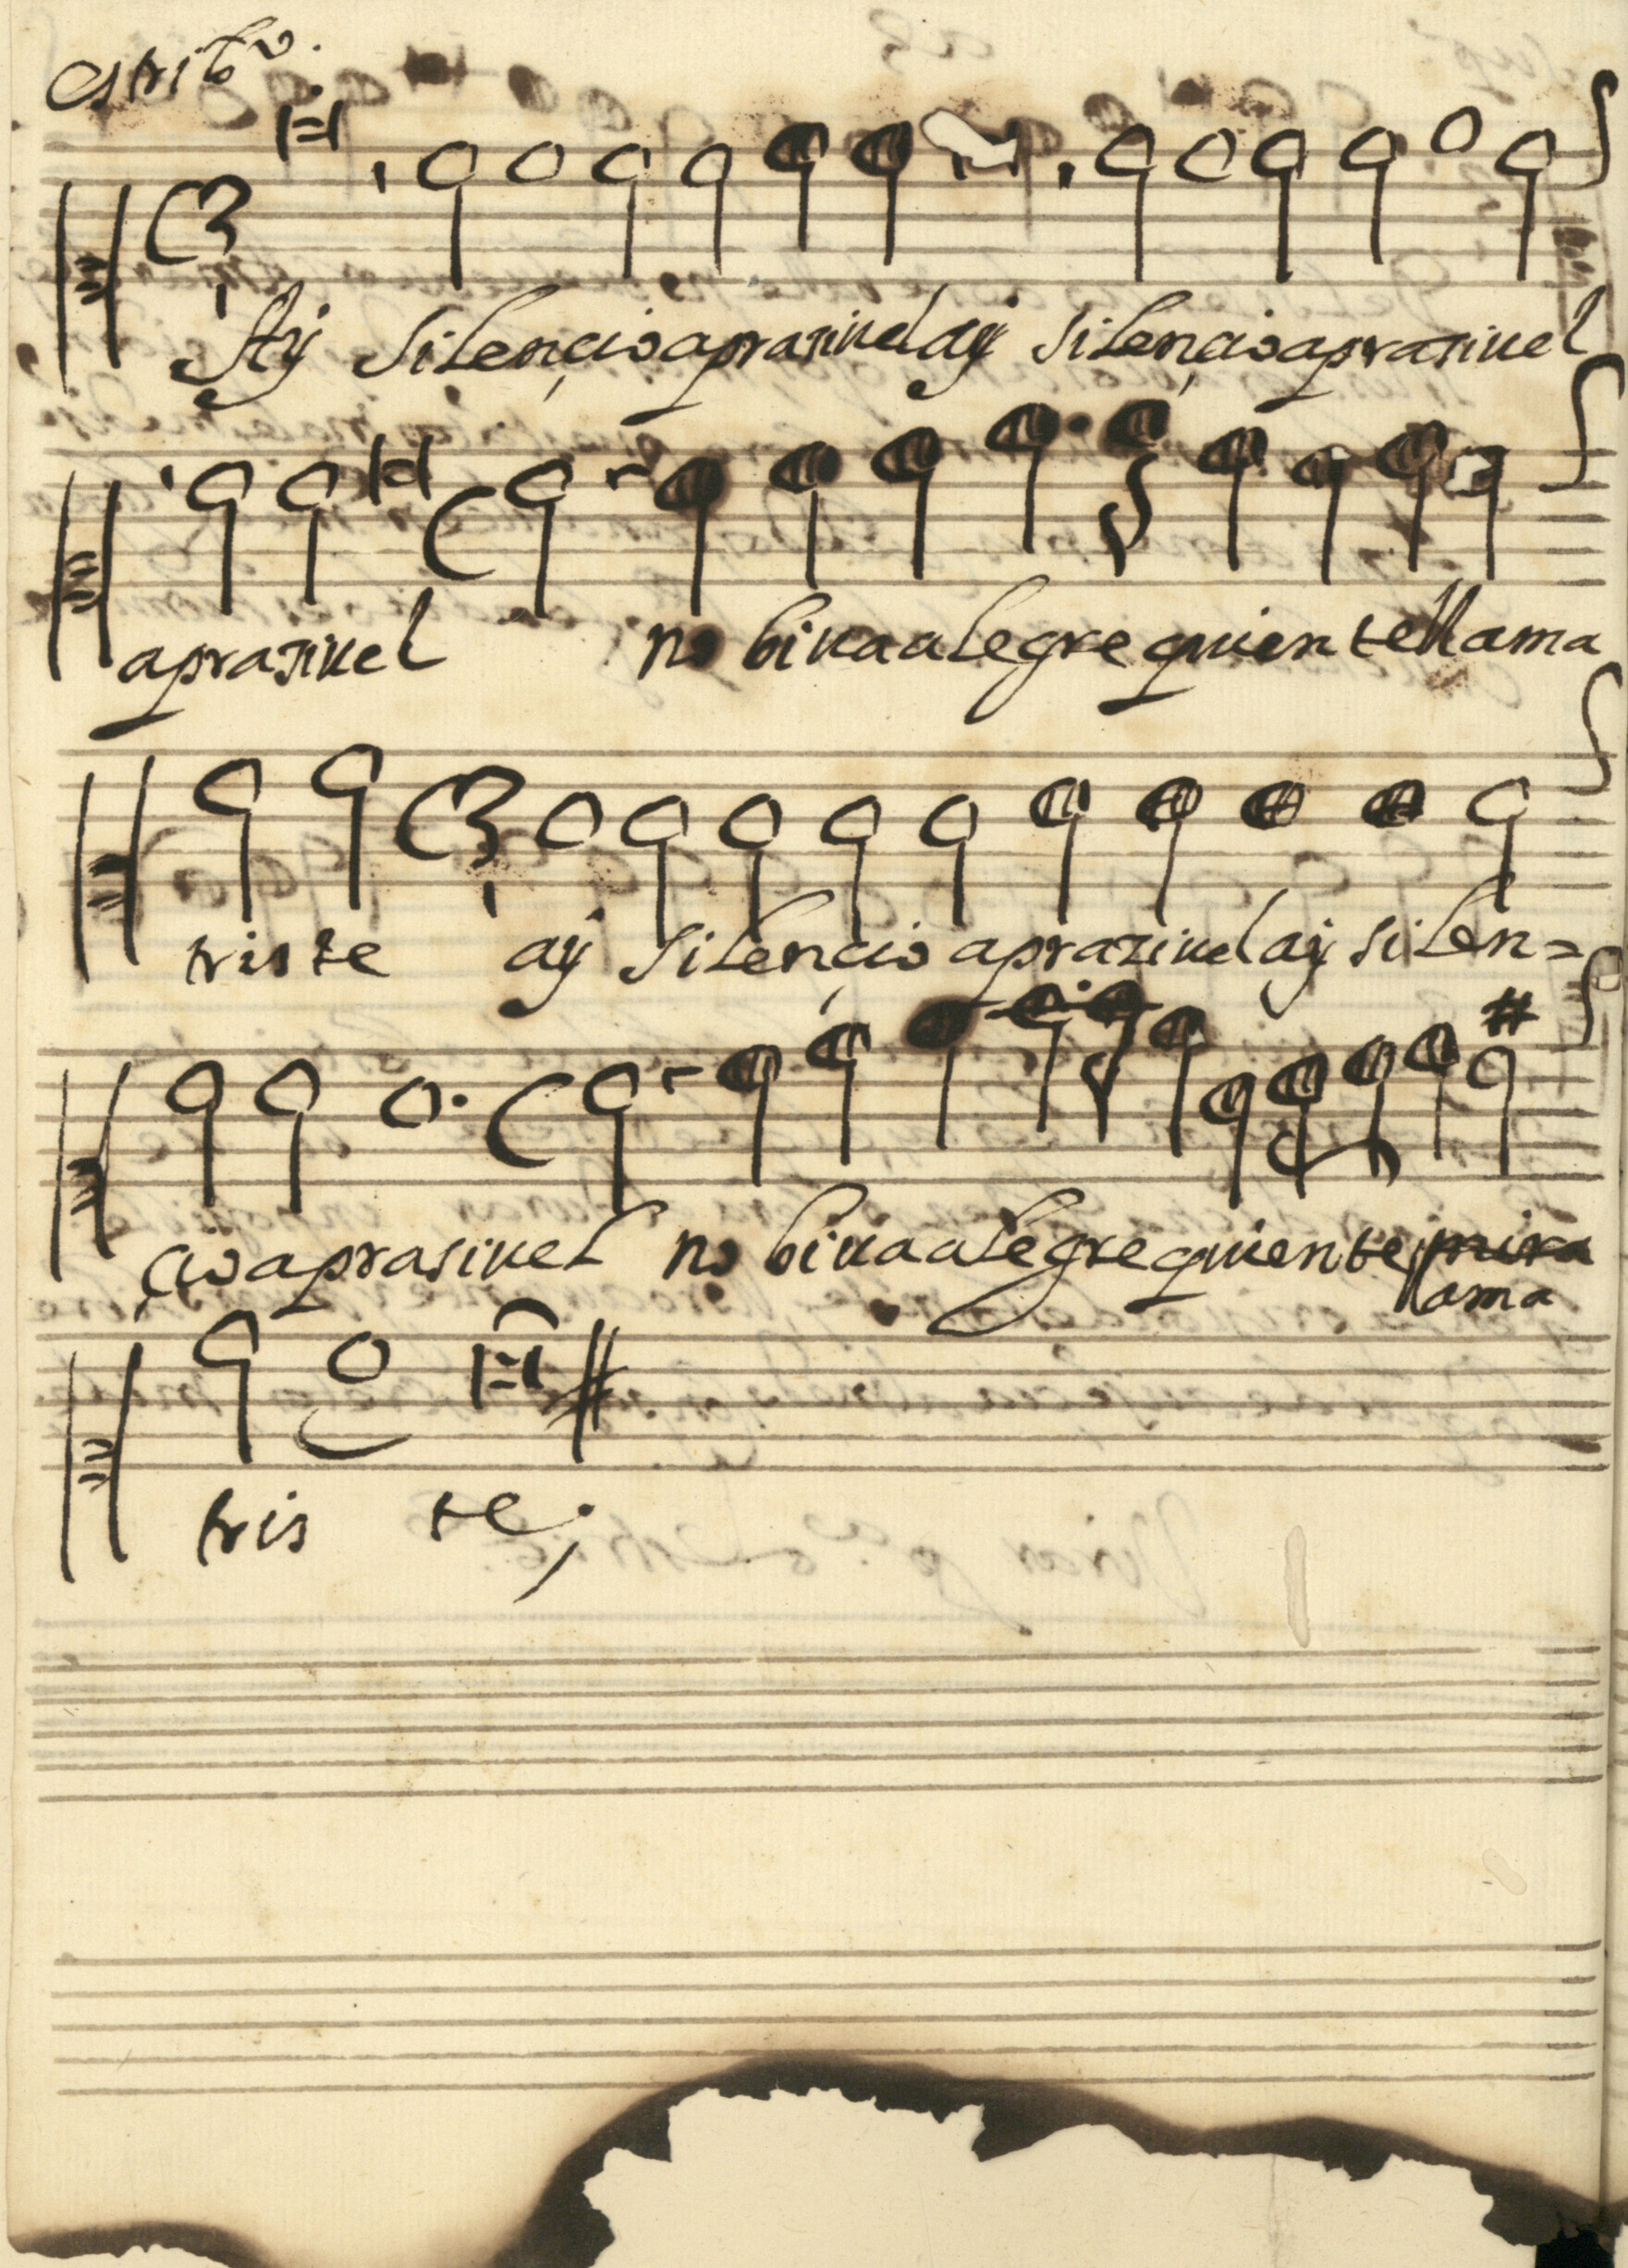 estribo.
Aÿ Silençio aprasiuel aÿ silençio aprasiuel
aprasiuel no biua alegre quien te llama
triste aÿ silençio apraziuel aÿ silen=
çio aprasiuel no biua alegre quien te mira
llama
tris te;